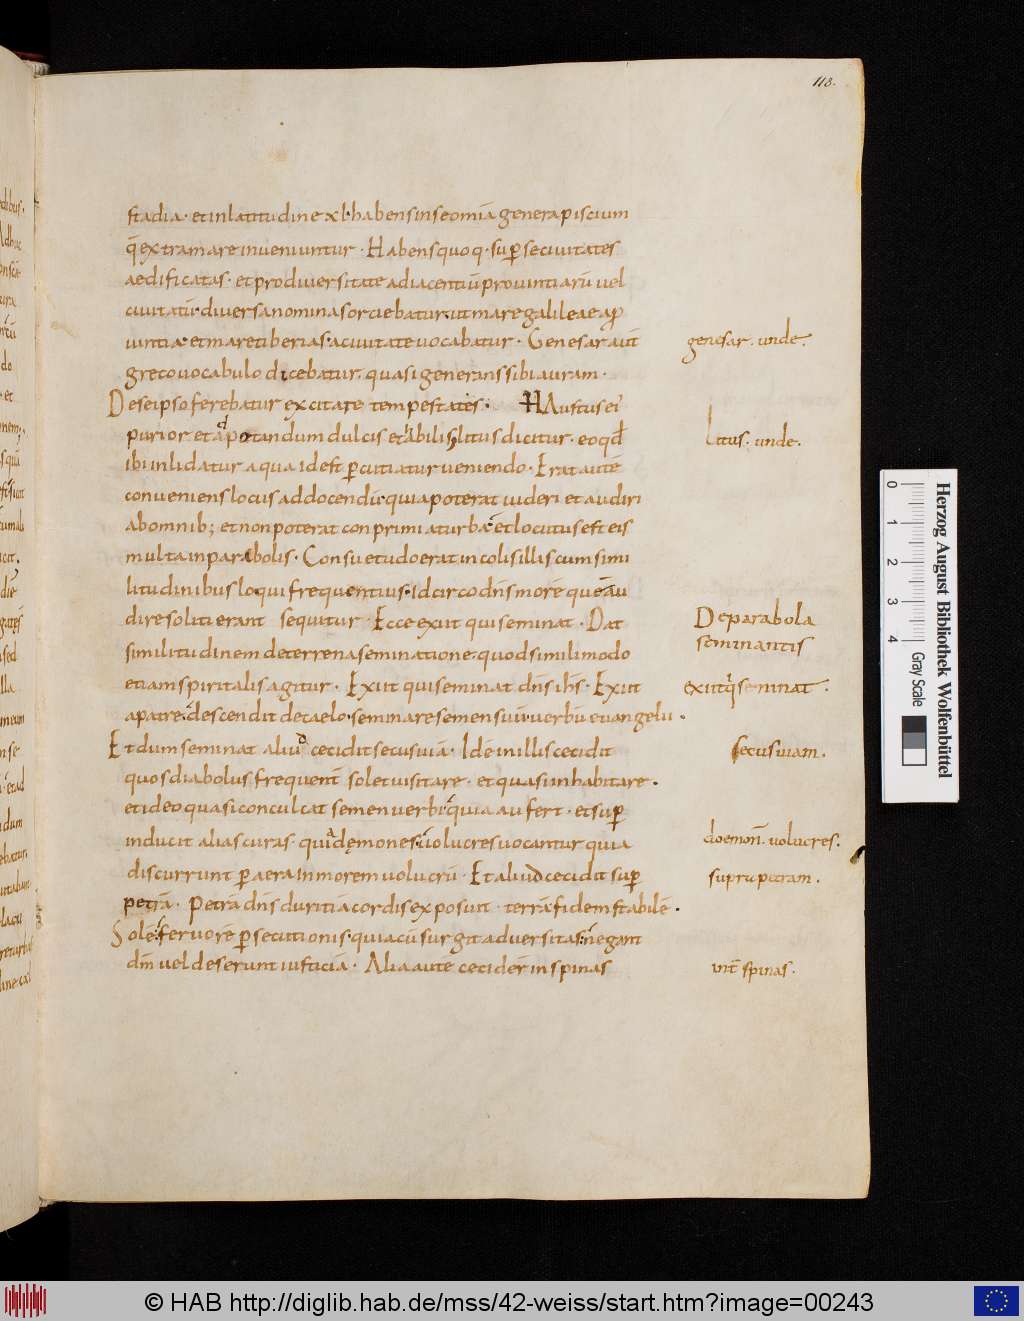 118.
stadia · et in latitudine xl · habens in se omia genera piscium
q̄ extra mare inveniuntur · Habens quoq · sup se civitates
aedificatas · et pro diversitate adiacentiū provintiarū vel
civitatū · diversa nomina sorciebatur · ut mare galileae a pro
vintia · et mare tiberias · a civitate vocabatur · Genesar aut̄
greco vocabulo dicebatur · quasi generans sibi auram ·
genesar . unde .
De se ipso ferebatur excitare tempestates · Haustus ei'
purior et ad potandum dulcis et abilis litus dicitur · eo qđ
litus . unde .
ibi inlidatur aqua id est pcutiatur veniendo · Erat autē
conveniens locus ad docendū · quia poterat videri et audiri
ab omnib; et non poterat conprimi a turba · et locutus est eis
multa in parabolis · Consuetudo erat incolis illis cum simi
litudinibus loqui frequentius · Idcirco dn̄s morē quē au
dire soliti erant sequitur · Ecce exiit qui seminat · Dat
De parabola
seminantis
similitudinem de terrena seminatione · quod simili modo
etiam spiritalis agitur · Exiit qui seminat dn̄s ih̄s · Exiit
exiit q̄ seminat .
a patre · descendit de caelo · seminare semen suū · verbū evangelii ·
Et dum seminat aliud cecidit secus viā · Idē in illis cecidit
secus viam .
quos diabolus frequent̄ solet visitare · et quasi inhabitare ·
et ideo quasi conculcat semen verbi · quia aufert · et sup
inducit alias curas · quia dęmones volucres vocantur quia
doemon̄ . volucres .
discurrunt p aera in morem volucrū · Et aliud cecidit sup
supra petram .
petrā · Petrā dn̄s duritiā cordis exposuit · terrā fidem stabilē ·
Solē · fervorē psecutionis · quia cū surgit adversitas · negant
dm̄ vel deserunt iusticiā · Alia autē ceciderī in spinas
int̄ spinas .
0 1 2 3 4
Gray Scale
Herzog August Bibliothek Wolfenbüttel
© HAB http://diglib.hab.de/mss/42-weiss/start.htm?image=00243